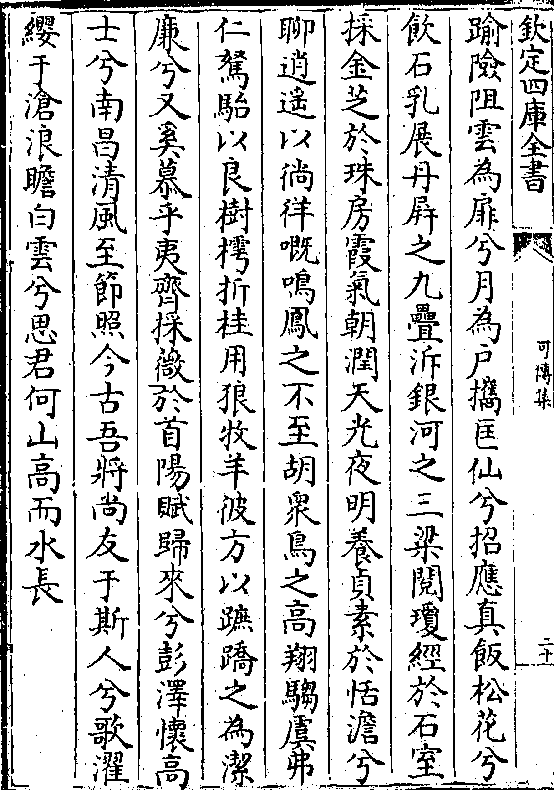 欽定四庫全書
可傳集
二十
踰險阻雲為扉兮月為戸攜匡仙兮招應真飯松花兮
飲石乳展丹屏之九疊泝銀河之三梁閲瓊經於石室
採金芝於珠房霞氣朝潤天光夜明養貞素於恬澹兮
聊逍遥以徜徉嘅鳴鳳之不至胡衆鳥之高翔騶虞弗
仁駑駘以良樹樗折桂用狼牧羊彼方以蹠蹻之為潔
廉兮又奚慕乎夷齊採薇於首陽賦歸來兮彭澤懷高
士兮南昌清風至節照今古吾將尚友于斯人兮歌濯
纓于滄浪瞻白雲兮思君何山高而水長